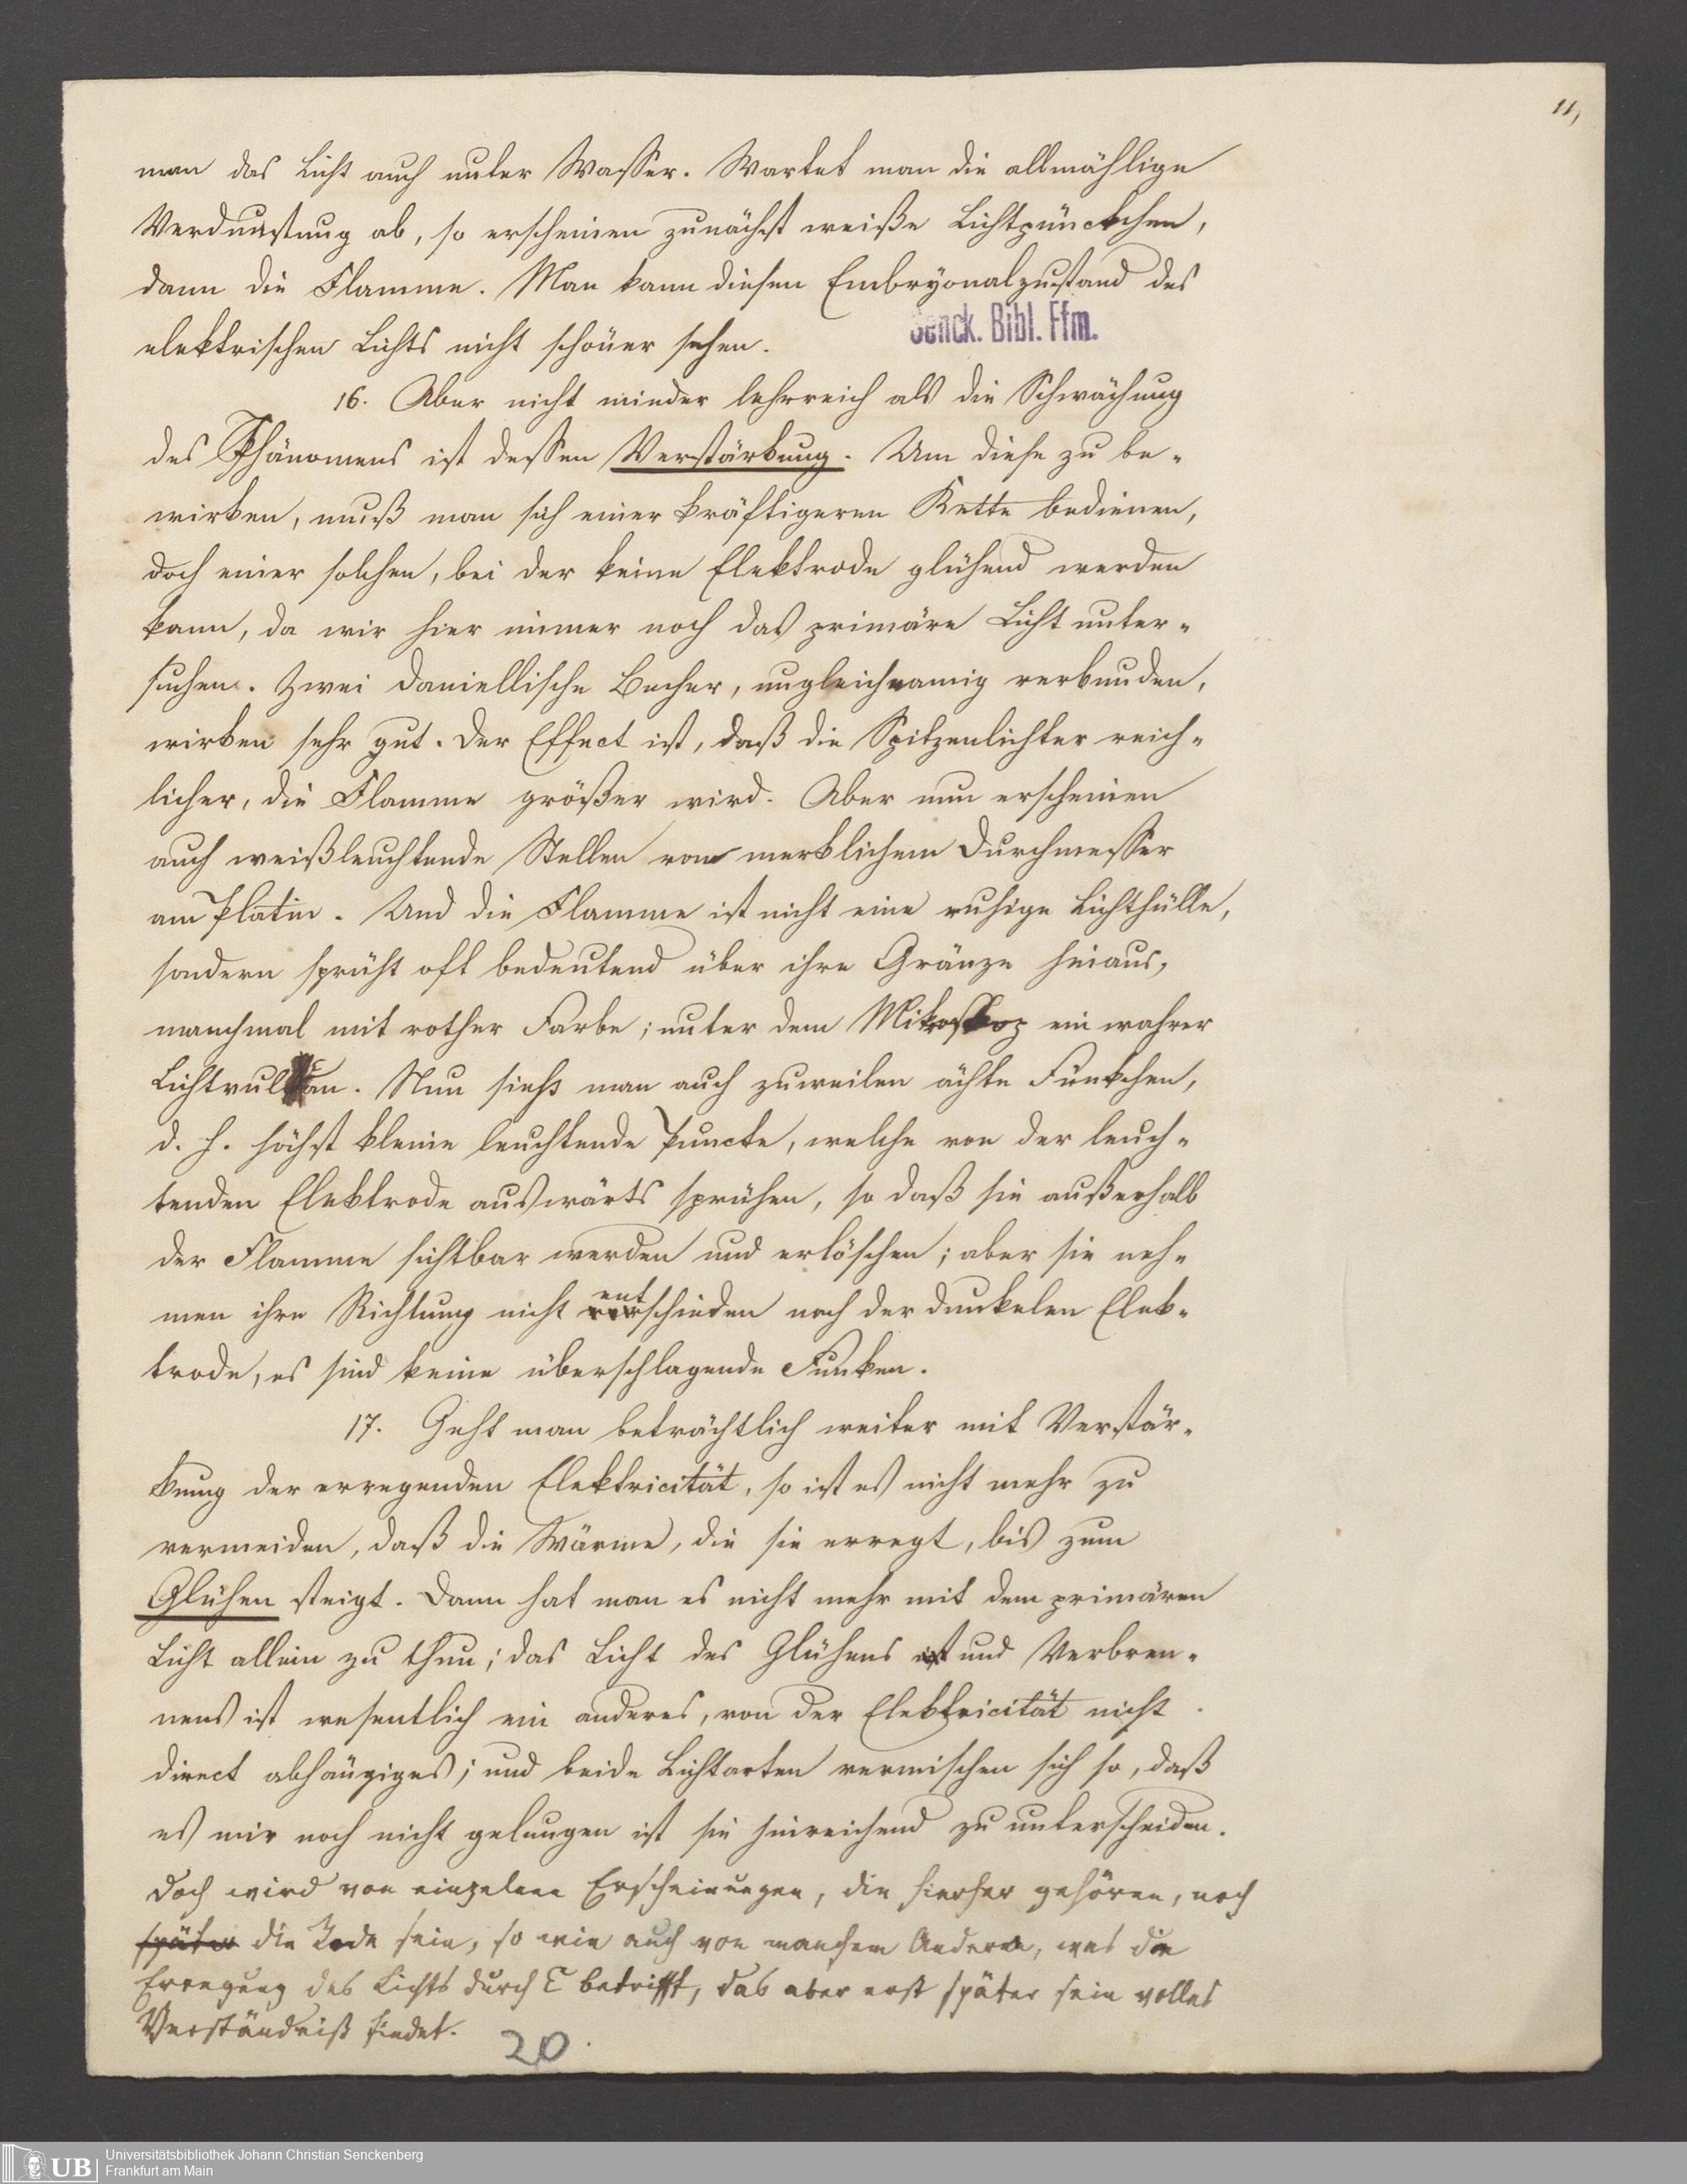 11,
man das Licht auch unter Wasser. Wartet man die allmählige
Verdunstung ab, so erscheinen zunächst weiße Lichtpünctchen,
dann die Flamme. Man kann diesen Embryonalzustand des
elektrischen Lichts nicht schöner sehen.
Senck. Bibl. Ffm.
16. Aber nicht minder lehrreich als die Schwächung
des Phänomens ist dessen Verstärkung. Um diese zu be-
wirken, muß man sich einer kräftigeren Kette bedienen,
doch einer solchen, bei der keine Elektrode glühend werden
kann, da wir hier immer noch das primäre Licht unter-
suchen. Zwei Daniellische Becher, ungleichnamig verbunden,
wirken sehr gut. Der Effect ist, daß die Spitzenlichter reich-
licher, die Flamme größer wird. Aber nun erscheinen
auch weißleuchtende Stellen von merklichem Durchmesser
am Platin. Und die Flamme ist nicht eine ruhige Lichthülle,
sondern sprüht oft bedeutend über ihre Gränze hinaus,
manchmal mit rother Farbe; unter dem Mikroskop ein wahrer
Lichtvulcan. Nun sieht man auch zuweilen ächte Fünkchen,
d. h. höchst kleine leuchtende Puncte, welche von der leuch-
tenden Elektrode auswärts sprühen, so daß sie außerhalb
der Flamme sichtbar werden und erlöschen; aber sie neh-
men ihre Richtung nicht entschieden nach der dunkelen Elek-
trode, es sind keine überschlagende Funken.
17. Geht man beträchtlich weiter mit Verstär-
kung der erregenden Elektricität, so ist es nicht mehr zu
vermeiden, daß die Wärme, die sie erregt, bis zum
Glühen steigt. Dann hat man es nicht mehr mit dem primären
Licht allein zu thun; das Licht des Glühens ist und Verbren-
nens ist wesentlich ein anderes, von der Elektricität nicht
direct abhängiges; und beide Lichtarten vermischen sich so, daß
es mir noch nicht gelungen ist sie hinreichend zu unterscheiden.
Doch wird von einzelnen Erscheinungen, die hierher gehören, noch
später die Rede sein, so wie auch von manchem Andern, was die
Erregung des Lichts durch E betrifft, das aber erst später sein volles
Verständniß findet.
20.
Universitätsbibliothek Johann Christian Senckenberg
UB Frankfurt am Main